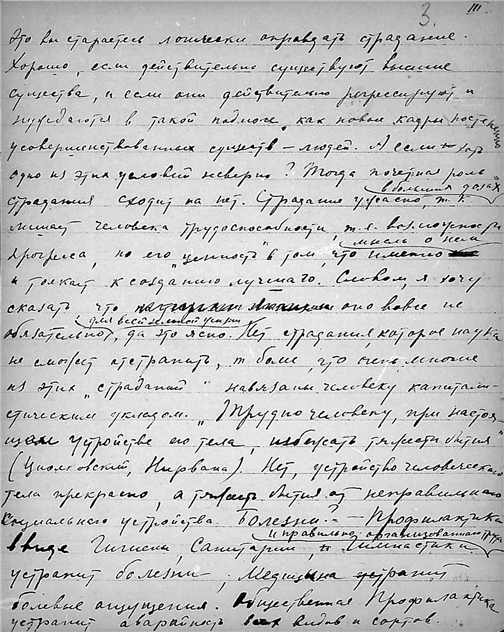 3.
III.
Это вы стараетесь логически оправдать страдание.
Хорошо, если действительно существуют высшие
существа, и если они действительно регрессируют и
нуждаются в такой подмоге, как новые кадры
усовершенствованных существ – людей. А если хоть
одно из этих условий неверно? Тогда почетная роль
в больших дозах
страдания сходит на нет. Страдание ужасно, т.к.
лишает человека трудоспособности, т.е. возможности
мысль о нем
прогресса, но его "ценность" в том, что именно
и толкает к созданию лучшего. Словом, я хочу
сказать что оно вовсе не
для всей земной жизни
обязательно, да это ясно. Нет страдания, которое наука
не сможет отстранить, т. более, что очень многие
из этих "страданий" навязаны человеку капитали-
стическим укладом. "Трудно человеку, при настоя-
щем устройстве его тела, избежать тяжести бытия"
(Циолковский, Нирвана). Нет, устройство человеческого
тела прекрасно, а тяжесть бытия от неправильного
социального устройства. Болезни? – Профилактика
и правильно организованный труд
в виде Гигиены, Санитарии и Гимнастики
устранит болезни –; Медицина устранит
болевые ощущения. Общественная Профилактика
устранит аварийность всех видов и сортов.